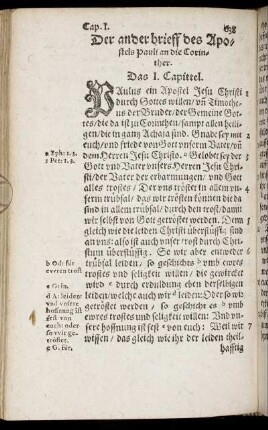 Cap. I.
Der ander brieff des Apo-
stels Pauli an die Corin-
ther.
Das 1. Capittel.
PAulus ein Apostel Jesu Christi
durch Gottes willen / vñ Timothe-
us der Bruder / der Gemeine Got-
tes / die da ist zu Corinthen / sampt allen heili-
gen / die in gantz Achaja sind. Gnade sey mit
euch / vnd friede von Gott vnserm Vater / vñ
dem Herren Jesu Christo. Gelobet sey der
Gott vnd Vater vnsers Herren Jesu Chri-
sti / der Vater der erbarmungen / vnd Gott
alles trostes / Der vns tröstet in allem vn-
serm trübsal / das wir trösten können die da
sind in allem trübsal / durch den trost / damit
wir selbst von Gott getröstet werden. Denn
gleich wie die leiden Christi überflüssig sind
an vns: also ist auch vnser trost durch Chri-
stum überflüssig. So wir aber
trübsal leiden / so geschichts vmb ewres
trostes vnd seligkeit willen / die gewircket
wird durch erduldung eben derselbigen
leiden / welche auch wir leiden: Oder so wir
getröstet werden / so geschicht es vmb
ewres trostes vnd seligkeit willen: Vnd vn-
sere hoffnung ist fest von euch: Weil wir
wissen / das gleich wie ihr der leiden theil-
hafftig
2
3
4
5
6
7
a Eph: 1. 3.
1 Pet: 1. 3.
b Od: für
eweren trost
c Gr:
d A: leiden:
vnd vnsere
hoffnung ist
fest von
euch: oder
so wir ge-
tröstet.
e G. für.